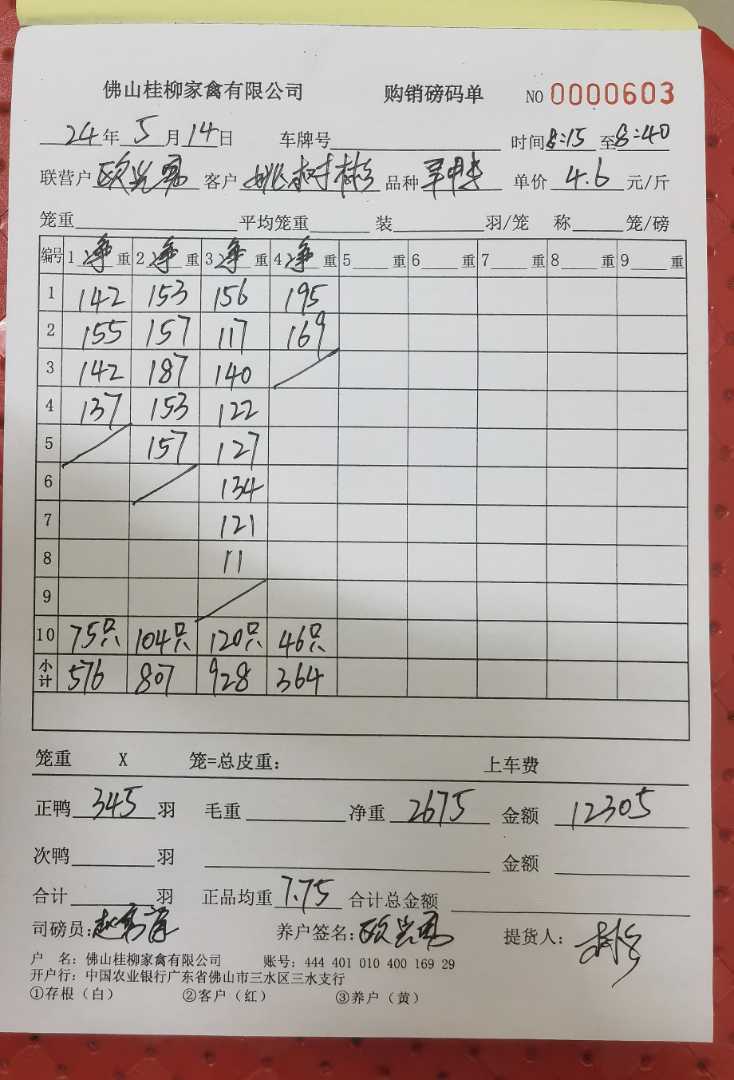 佛山桂柳家禽有限公司 购销磅码单 NO 0000603
24年 5 月 14日 车牌号 时间8:15 至8:40
联营户 欧光勇 客户 姚树彬 品种 单价 4.6 元/斤
笼重 平均笼重 装 羽/笼 称 笼/磅
编号 1 净 重 2 净 重 3 净 重 4 净 重 5 重 6 重 7 重 8 重 9 重
1 142 153 156 195
2 155 157 117 169
3 142 187 140
4 137 153 122
5 157 127
6 134
7 121
8 11
9
10 75只 104只 120只 46只
小计 576 807 928 364
笼重 X 笼=总皮重: 上车费
正鸭 345 羽 毛重 净重 2675 金额 12305
次鸭 羽 金额
合计 羽 正品均重 7.75 合计总金额
司磅员: 养户签名: 欧光勇 提货人:
户 名: 佛山桂柳家禽有限公司 账号: 444 401 010 400 169 29
开户行: 中国农业银行广东省佛山市三水区三水支行
①存根(白) ②客户(红) ③养户(黄)